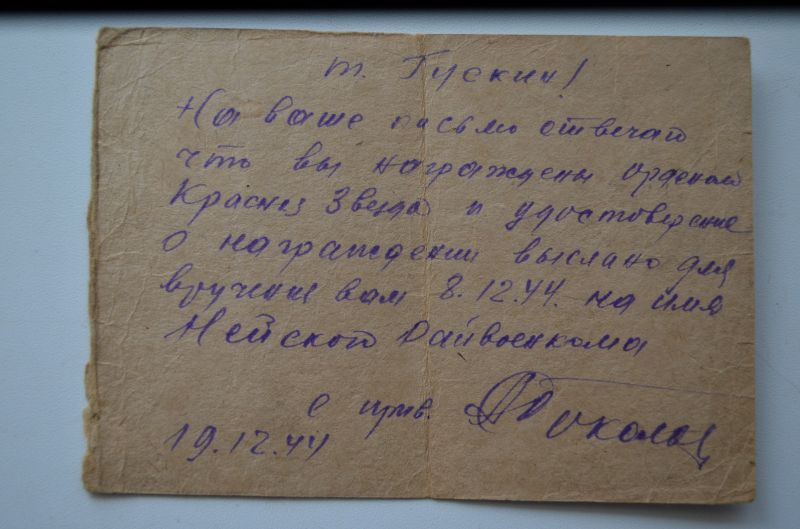 т. Гускин!
На ваше письмо отвечаю
что вы награждены орденом
Красной Звезды и удостоверение
о награждении выслано для
вручение вам 8.12.44. на имя
Нейского Райвоенкома
с прив.
19.12.44